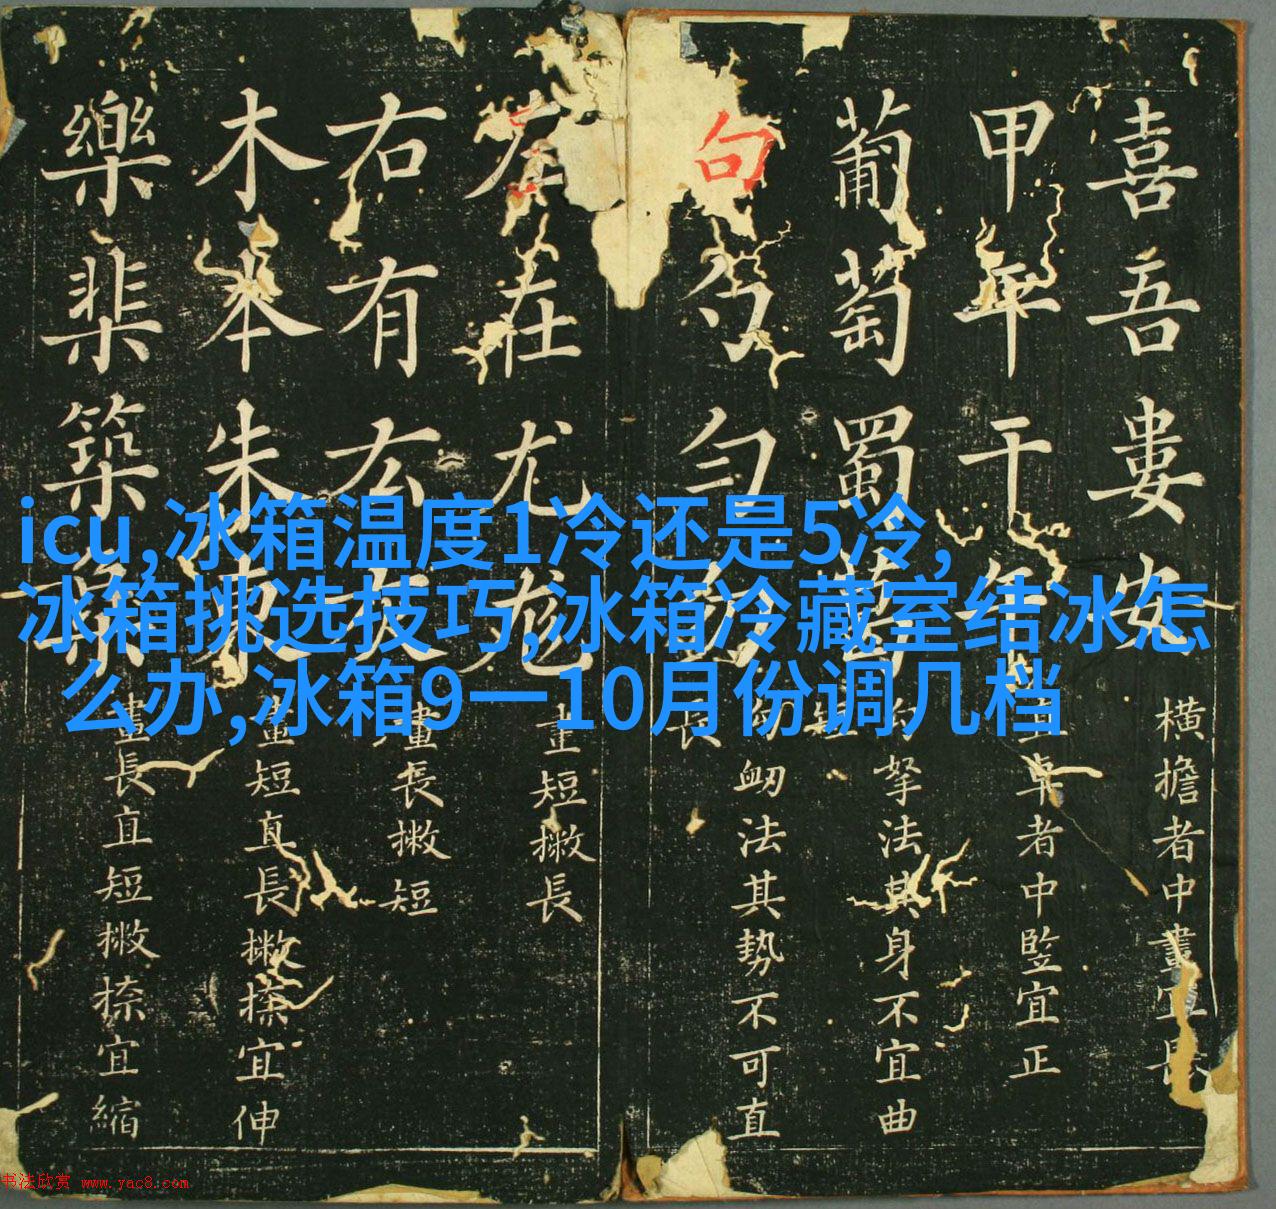 icu,冰箱温度1冷还是5冷,
冰箱挑选技巧,冰箱冷藏室结冰怎
么办,冰箱9一10月份调几档
喜吾婁安
横擔者中畫宜長
甲平干
卓者中監宜正
葡萄蜀
拏法其身不宜曲
句勺勻
衂法其势不可直
左在尤尨
畫短撇長
右有厷友
畫長撇短
木本朱東
畫短直長撇捺宜伸
樂棐築
畫長直短撇捺宜縮
书法欣赏 www.yac8.com